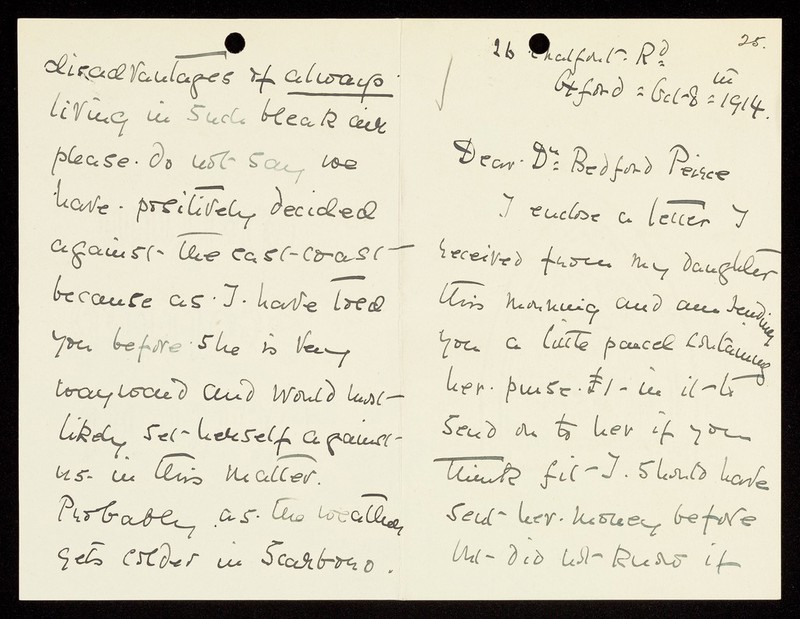 25.
26 Chalfont Rd
Oxford = Oct-8th = 1914.
Dear Dr. Bedford Peirce
I enclose a letter I
received from my daughter
this morning and am sending
you a little parcel containing
her purse. £1- in it - to
send on to her if you
think fit - I should have
sent her money before
but did not know if
disadvantages of always
living in such bleak air
please do not say we
have positively decided
against the east-coast -
because as I have told
you before she is very
wayward and would most-
likely set herself against-
us in this matter.
Probably as the weather
gets colder in Scarboro.